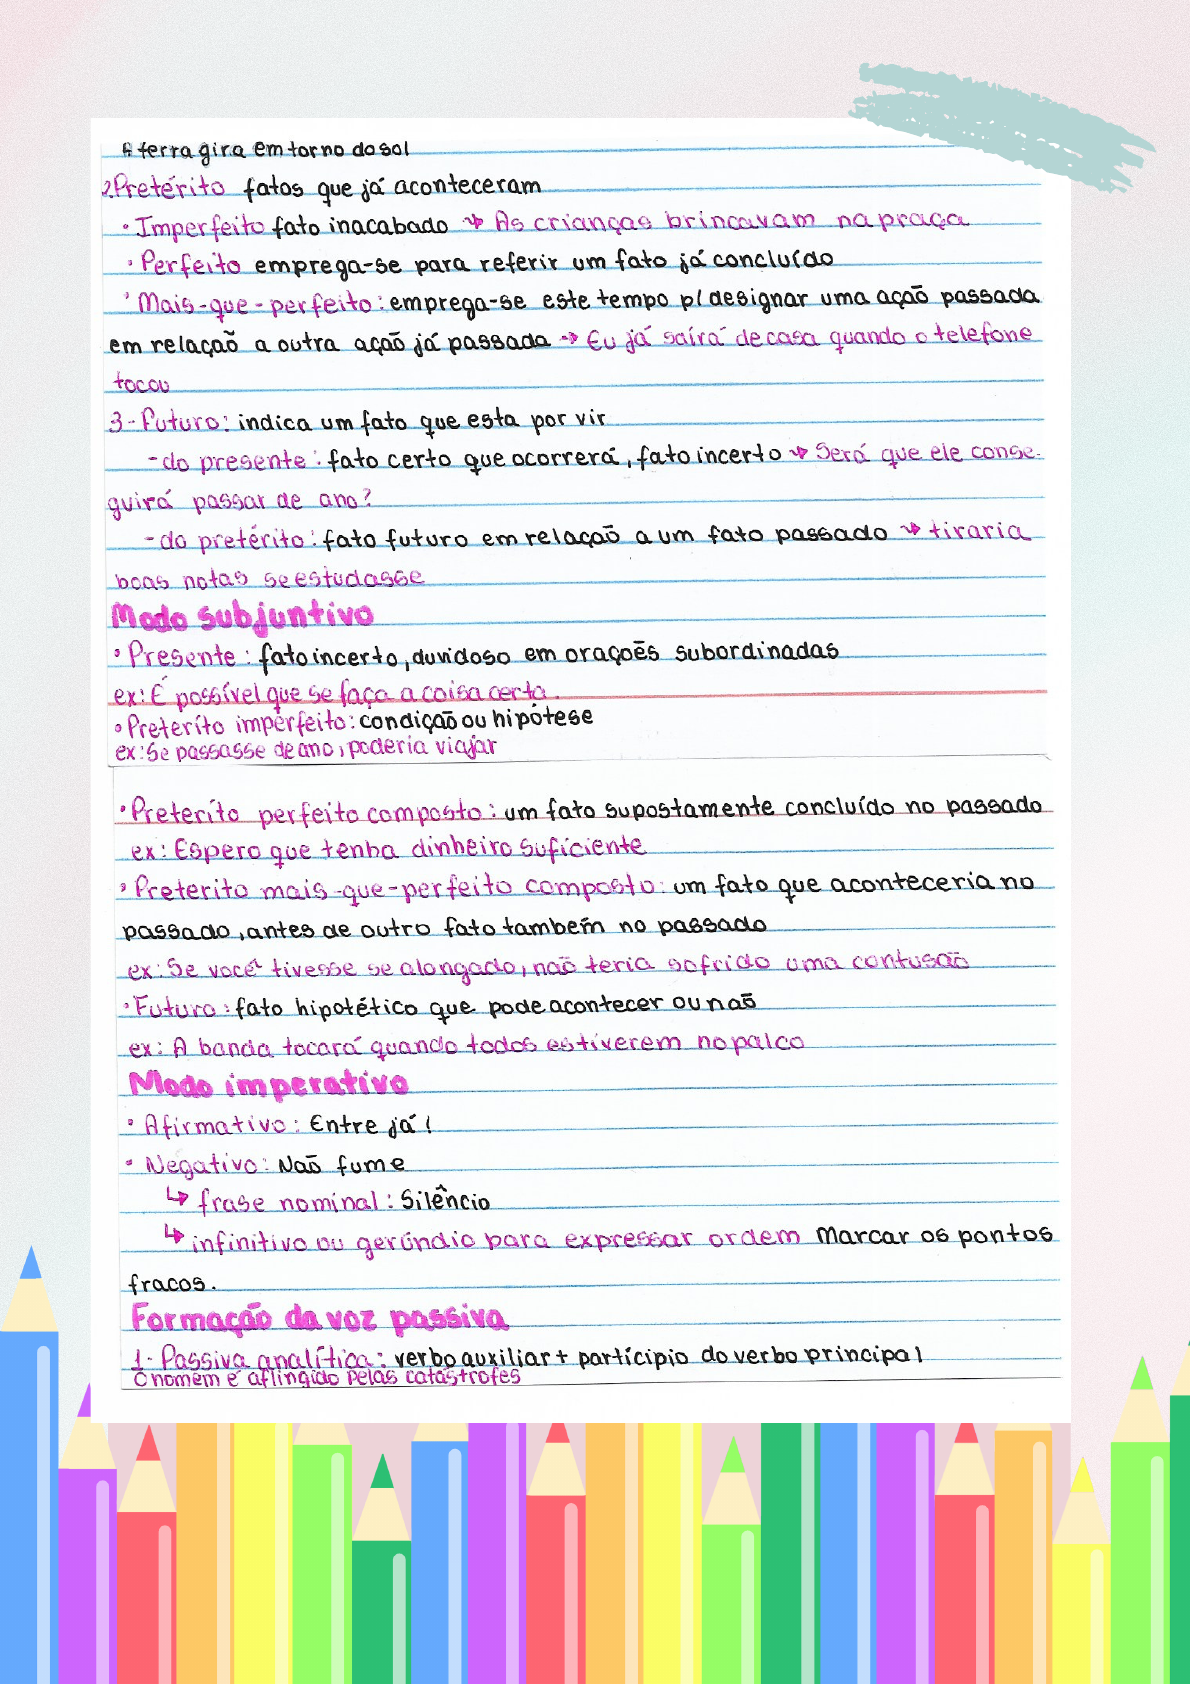 A terra gira em torno do sol
2. Pretérito fatos que já aconteceram
• Imperfeito fato inacabado → As crianças brincavam na praça
• Perfeito emprega-se para referir um fato já concluído
• Mais-que-perfeito: emprega-se este tempo p/ designar uma ação passada
em relação a outra ação já passada → Eu já saíra de casa quando o telefone
tocou
3- Futuro: indica um fato que esta por vir
- do presente: fato certo que ocorrerá, fato incerto → Será que ele conse-
guirá passar de ano?
- do pretérito: fato futuro em relação a um fato passado → tiraria
boas notas se estudasse
Modo subjuntivo
• Presente: fato incerto, duvidoso em oraçoẽs subordinadas
ex: É possível que se faça a coisa certa.
• Preteríto imperfeito: condição ou hipótese
ex: Se passasse de ano, poderia viajar
• Preteríto perfeito composto: um fato supostamente concluído no passado
ex: Espero que tenha dinheiro suficiente
• Preterito mais-que-perfeito composto: um fato que aconteceria no
passado, antes de outro fato também no passado
ex: Se você tivesse se alongado, não teria sofrido uma contusão
• Futuro: fato hipotético que pode acontecer ou não
ex: A banda tocará quando todos estiverem no palco
Modo imperativo
• Afirmativo: Entre já!
• Negativo: Não fume
↳ frase nominal: Silêncio
↳ infinitivo ou gerúndio para expressar ordem Marcar os pontos
fracos.
Formação da voz passiva
1- Passiva analítica: verbo auxiliar + particípio do verbo principal
O homem é aflingido pelas catástrofes